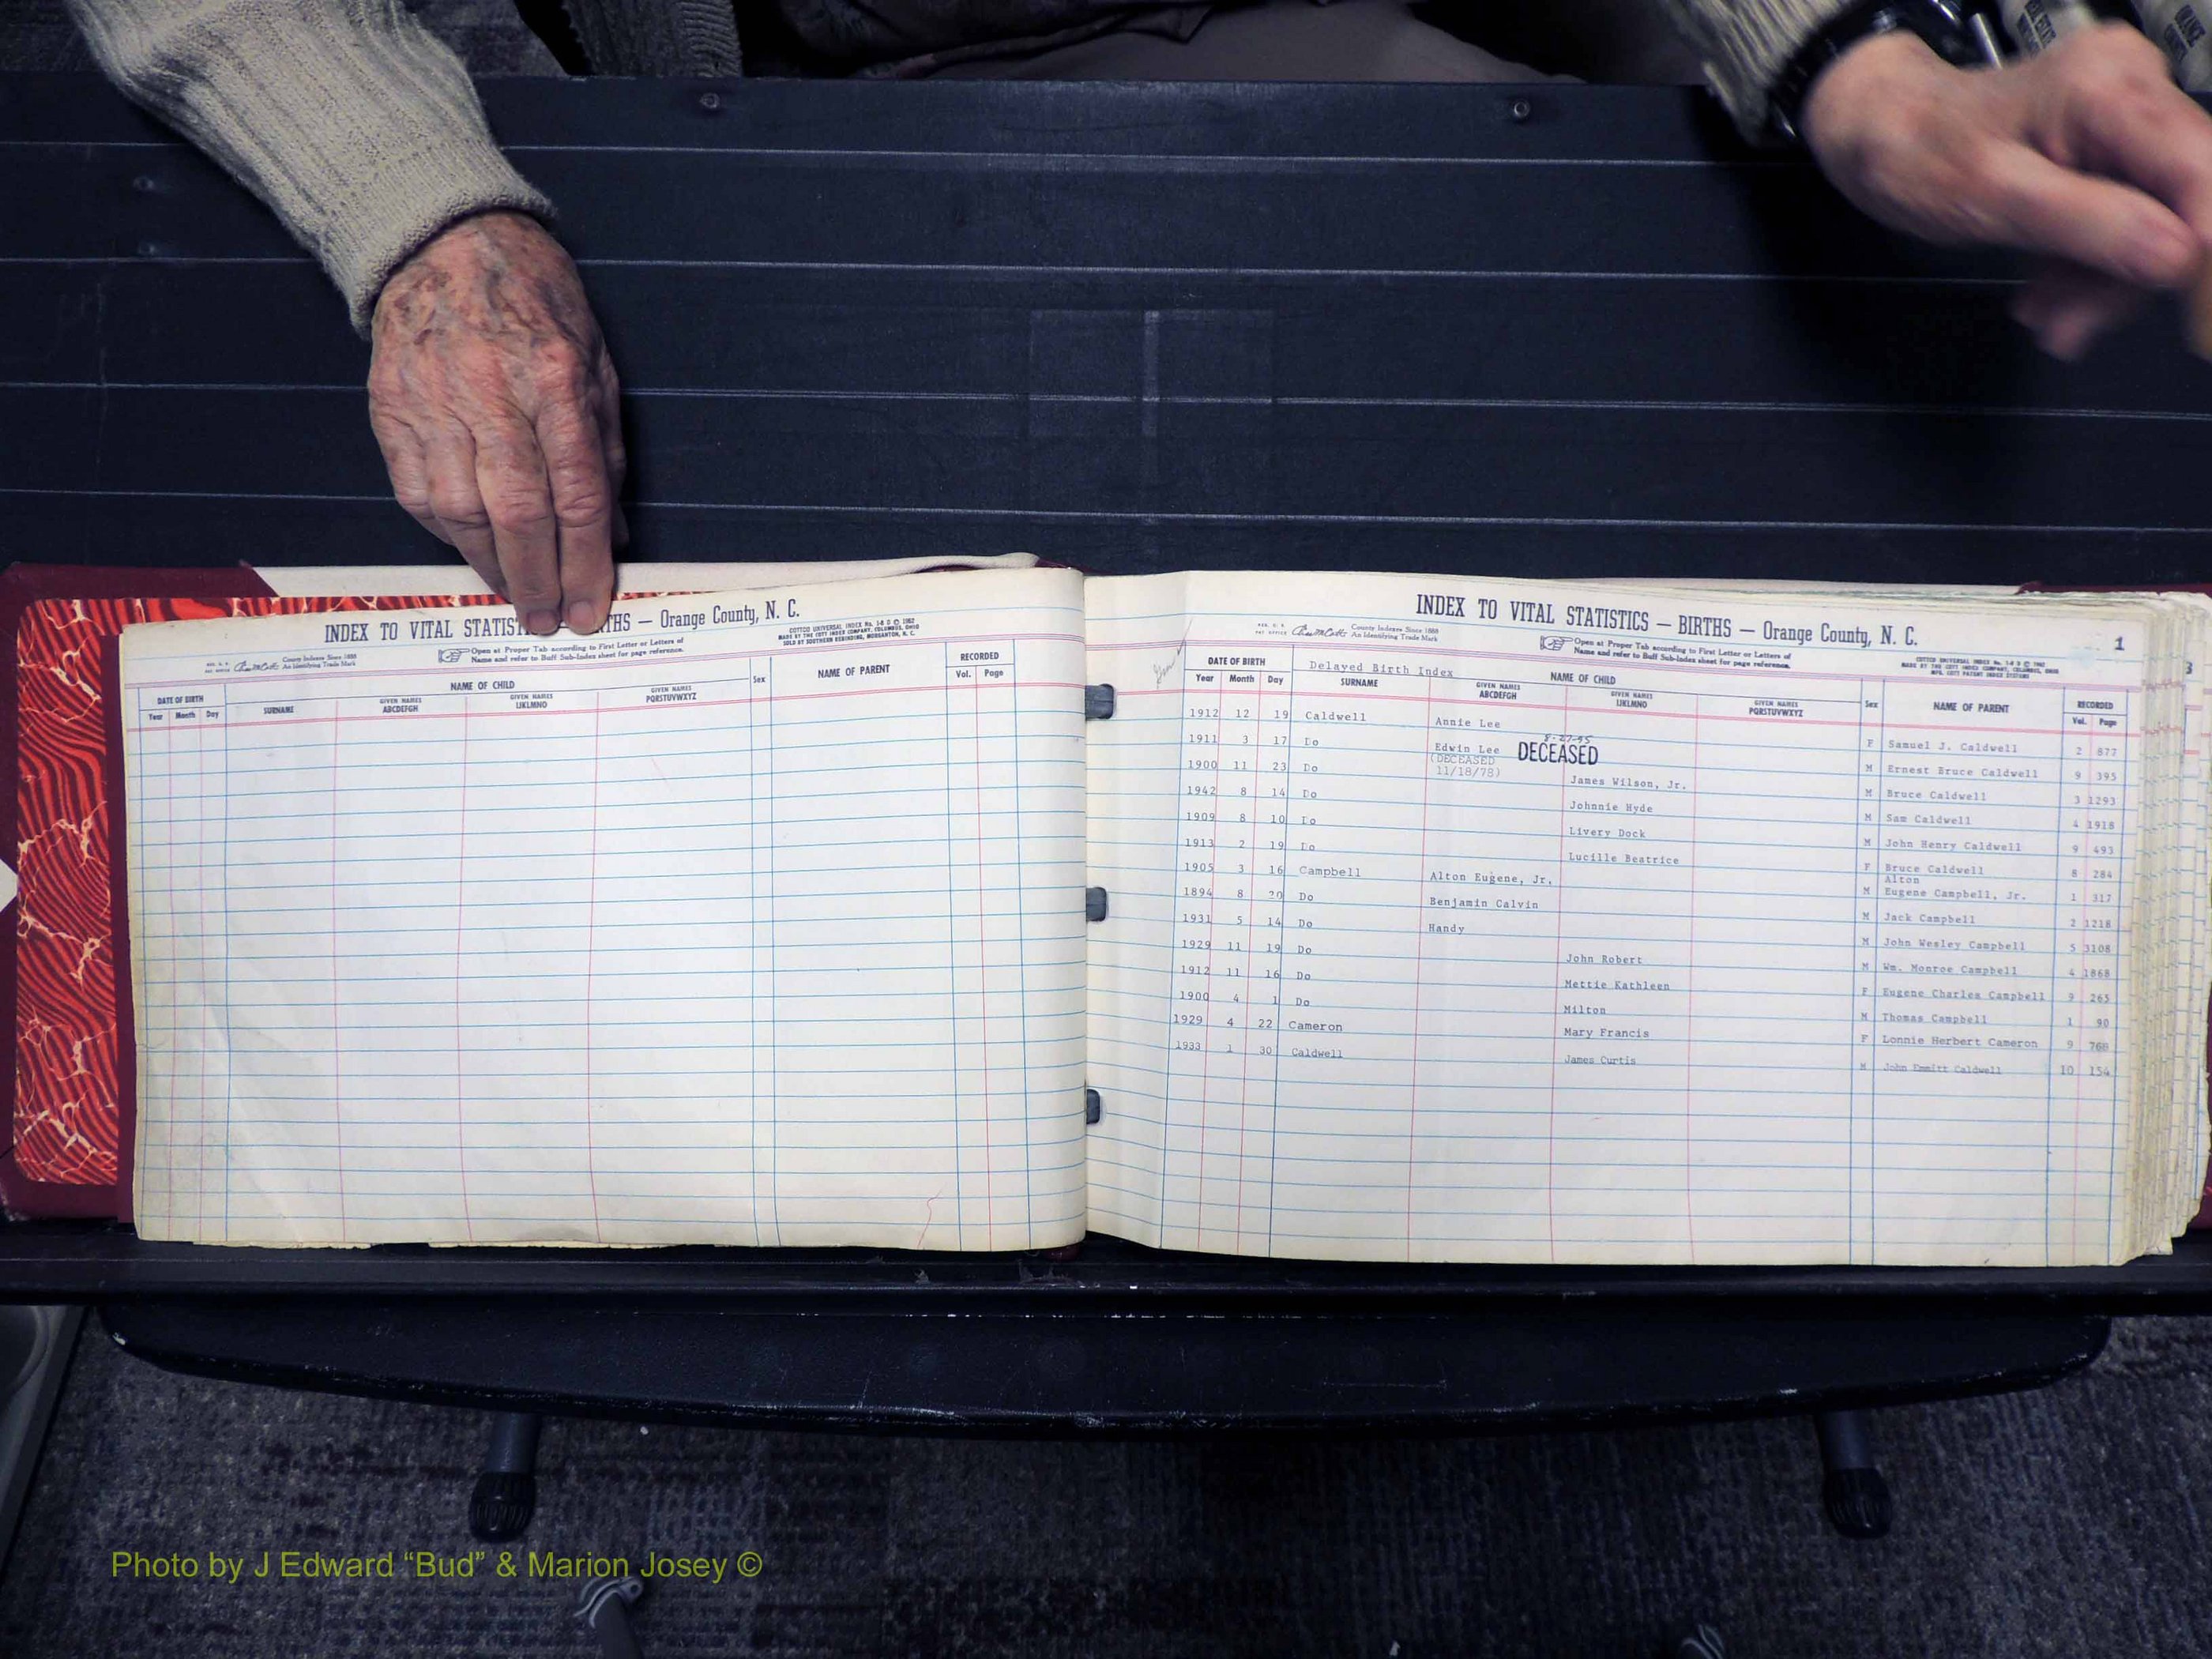 INDEX TO VITAL STATIST THS — Orange County, N. C.
County Indexes Since 1888
An Identifying Trade Mark
Open at Proper Tab according to First Letter or Letters of
Name and refer to Buff Sub-Index sheet for page reference.
COTTCO UNIVERSAL INDEX No. 1-8 D © 1962
MADE BY THE COTT INDEX COMPANY, COLUMBUS, OHIO
SOLD BY SOUTHERN REBINDING, MORGANTON, N. C.
DATE OF BIRTH NAME OF CHILD Sex NAME OF PARENT RECORDED
Year Month Day SURNAME GIVEN NAMES ABCDEFGH GIVEN NAMES IJKLMNO GIVEN NAMES PQRSTUVWXYZ Vol. Page
INDEX TO VITAL STATISTICS — BIRTHS — Orange County, N. C. 1
County Indexes Since 1888
An Identifying Trade Mark
Open at Proper Tab according to First Letter or Letters of
Name and refer to Buff Sub-Index sheet for page reference.
COTTCO UNIVERSAL INDEX No. 1-8 D © 1962
MADE BY THE COTT INDEX COMPANY, COLUMBUS, OHIO
MFG. COTT PATENT INDEX SYSTEMS
Delayed Birth Index
DATE OF BIRTH NAME OF CHILD Sex NAME OF PARENT RECORDED
Year Month Day SURNAME GIVEN NAMES ABCDEFGH GIVEN NAMES IJKLMNO GIVEN NAMES PQRSTUVWXYZ Vol. Page
1912 12 19 Caldwell Annie Lee F Samuel J. Caldwell 2 877
8-27-95
1911 3 17 Do Edwin Lee DECEASED M Ernest Bruce Caldwell 9 395
(DECEASED
11/18/78)
1900 11 23 Do James Wilson, Jr. M Bruce Caldwell 3 1293
1942 8 14 Do Johnnie Hyde M Sam Caldwell 4 1918
1909 8 10 Do Livery Dock M John Henry Caldwell 9 493
1913 2 19 Do Lucille Beatrice F Bruce Caldwell 8 284
Alton
1905 3 16 Campbell Alton Eugene, Jr. M Eugene Campbell, Jr. 1 317
1894 8 20 Do Benjamin Calvin M Jack Campbell 2 1218
1931 5 14 Do Handy M John Wesley Campbell 5 3108
1929 11 19 Do John Robert M Wm. Monroe Campbell 4 1868
1912 11 16 Do Mettie Kathleen F Eugene Charles Campbell 9 265
1900 4 1 Do Milton M Thomas Campbell 1 90
1929 4 22 Cameron Mary Francis F Lonnie Herbert Cameron 9 768
1933 1 30 Caldwell James Curtis M John Emmitt Caldwell 10 154
Photo by J Edward “Bud” & Marion Josey ©